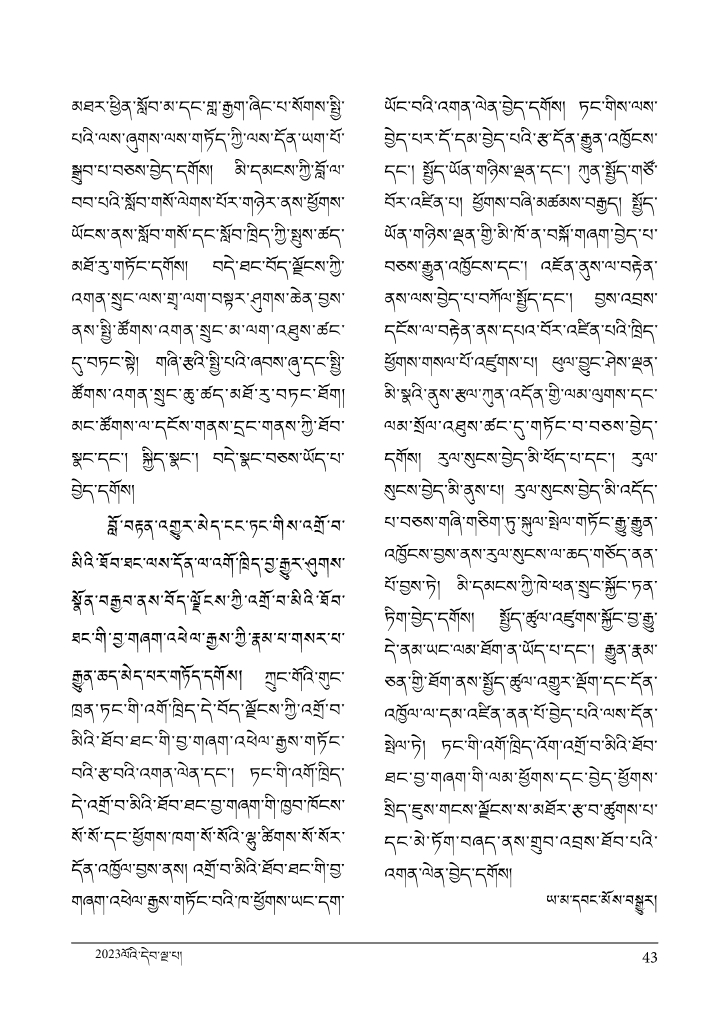 མཐར་ཕྱིན་སློབ་མ་དང་གླ་རྒྱག་ཞིང་པ་སོགས་སྤྱི་
པའི་ལས་ཞུགས་ལས་གཏོད་ཀྱི་ལས་དོན་ཡག་པོ་
སྒྲུབ་པ་བཅས་བྱེད་དགོས། མི་དམངས་ཀྱི་བློ་ལ་
བབ་པའི་སློབ་གསོ་ལེགས་པོར་གཉེར་ནས་ཕྱོགས་
ཡོངས་ནས་སློབ་གསོ་དང་སློབ་ཁྲིད་ཀྱི་སྤུས་ཚད་
མཐོ་རུ་གཏོང་དགོས། བདེ་ཐང་བོད་ལྗོངས་ཀྱི་
འགན་སྲུང་ལས་གྲྭ་ལག་བསྟར་ཤུགས་ཆེན་བྱས་
ནས་སྤྱི་ཚོགས་འགན་སྲུང་མ་ལག་འཐུས་ཚང་
དུ་བཏང་སྟེ། གཞི་རྩའི་སྤྱི་པའི་ཞབས་ཞུ་དང་སྤྱི་
ཚོགས་འགན་སྲུང་ཆུ་ཚད་མཐོ་རུ་བཏང་ཐོག།
མང་ཚོགས་ལ་དངོས་གནས་དྲང་གནས་ཀྱི་ཐོབ་
སྣང་དང་། སྐྱིད་སྣང་། བདེ་སྣང་བཅས་ཡོད་པ་
བྱེད་དགོས།
བློ་བརྟན་འགྱུར་མེད་ངང་ཏང་གིས་འགྲོ་བ་
མིའི་ཐོབ་ཐང་ལས་དོན་ལ་འགོ་ཁྲིད་བྱ་རྒྱུར་ཤུགས་
སྣོན་བརྒྱབ་ནས་བོད་ལྗོངས་ཀྱི་འགྲོ་བ་མིའི་ཐོབ་
ཐང་གི་བྱ་གཞག་འཕེལ་རྒྱས་ཀྱི་རྣམ་པ་གསར་པ་
རྒྱུན་ཆད་མེད་པར་གཏོད་དགོས། ཀྲུང་གོའི་གུང་
ཁྲན་ཏང་གི་འགོ་ཁྲིད་དེ་བོད་ལྗོངས་ཀྱི་འགྲོ་བ་
མིའི་ཐོབ་ཐང་གི་བྱ་གཞག་འཕེལ་རྒྱས་གཏོང་
བའི་རྩ་བའི་འགན་ལེན་དང་། ཏང་གི་འགོ་ཁྲིད་
དེ་འགྲོ་བ་མིའི་ཐོབ་ཐང་བྱ་གཞག་གི་ཁྱབ་ཁོངས་
སོ་སོ་དང་ཕྱོགས་ཁག་སོ་སོའི་ལྷུ་ཚིགས་སོ་སོར་
དོན་འཁྱོལ་བྱས་ནས། འགྲོ་བ་མིའི་ཐོབ་ཐང་གི་བྱ་
གཞག་འཕེལ་རྒྱས་གཏོང་བའི་ཁ་ཕྱོགས་ཡང་དག་
ཡོང་བའི་འགན་ལེན་བྱེད་དགོས། ཏང་གིས་ལས་
བྱེད་པར་དོ་དམ་བྱེད་པའི་རྩ་དོན་རྒྱུན་འཁྱོངས་
དང་། སྤྱོད་ཡོན་གཉིས་ལྡན་དང་། ཀུན་སྤྱོད་གཙོ་
བོར་འཛིན་པ། ཕྱོགས་བཞི་མཚམས་བརྒྱད། སྤྱོད་
ཡོན་གཉིས་ལྡན་གྱི་མི་ཁོ་ན་བསྐོ་གཞག་བྱེད་པ་
བཅས་རྒྱུན་འཁྱོངས་དང་། འཇོན་ནུས་ལ་བརྟེན་
ནས་ལས་བྱེད་པ་བཀོལ་སྤྱོད་དང་། བྱས་འབྲས་
དངོས་ལ་བརྟེན་ནས་དཔའ་བོར་འཛིན་པའི་ཁྲིད་
ཕྱོགས་གསལ་པོ་འཛུགས་པ། ཕུལ་བྱུང་ཤེས་ལྡན་
མི་སྣའི་ནུས་རྩལ་ཀུན་འདོན་གྱི་ལམ་ལུགས་དང་
ལམ་སྲོལ་འཐུས་ཚང་དུ་གཏོང་བ་བཅས་བྱེད་
དགོས། རུལ་སུངས་བྱེད་མི་ཕོད་པ་དང་། རུལ་
སུངས་བྱེད་མི་ནུས་པ། རུལ་སུངས་བྱེད་མི་འདོད་
པ་བཅས་གཞི་གཅིག་ཏུ་སྐུལ་སྤེལ་གཏོང་རྒྱུ་རྒྱུན་
འཁྱོངས་བྱས་ནས་རུལ་སུངས་ལ་ཆད་གཅོད་ནན་
པོ་བྱས་ཏེ། མི་དམངས་ཀྱི་ཁེ་ཕན་སྲུང་སྐྱོང་ཏན་
ཏིག་བྱེད་དགོས། སྤྱོད་ཚུལ་འཛུགས་སྐྱོང་བྱ་རྒྱུ་
དེ་ནམ་ཡང་ལམ་ཐོག་ན་ཡོད་པ་དང་། རྒྱུན་རྣམ་
ཅན་གྱི་ཐོག་ནས་སྤྱོད་ཚུལ་འགྱུར་ལྡོག་དང་དོན་
འཁྱོལ་ལ་དམ་འཛིན་ནན་པོ་བྱེད་པའི་ལས་དོན་
སྤེལ་ཏེ། ཏང་གི་འགོ་ཁྲིད་འོག་འགྲོ་བ་མིའི་ཐོབ་
ཐང་བྱ་གཞག་གི་ལམ་ཕྱོགས་དང་བྱེད་ཕྱོགས་
སྲིད་ཇུས་གངས་ལྗོངས་ས་མཐོར་རྩ་བ་ཚུགས་པ་
དང་མེ་ཏོག་བཞད་ནས་གྲུབ་འབྲས་ཐོབ་པའི་
འགན་ལེན་བྱེད་དགོས།
ཡ་མ་དབང་མོས་བསྒྱུར།
2023ལོའི་དེབ་ལྔ་པ།
43